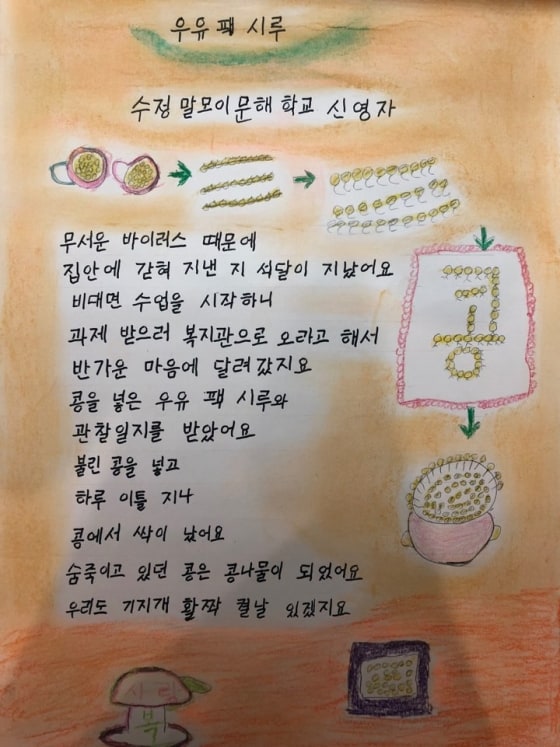 우유 팩 시루
수정 말모이문해 학교 신영자
무서운 바이러스 때문에
집안에 갇혀 지낸 지 석달이 지났어요
비대면 수업을 시작하니
과제 받으러 복지관으로 오라고 해서
반가운 마음에 달려갔지요
콩을 넣은 우유 팩 시루와
관찰일지를 받았어요
불린 콩을 넣고
하루 이틀 지나
콩에서 싹이 났어요
숨죽이고 있던 콩은 콩나물이 되었어요
우리도 기지개 활짝 켤날 있겠지요
콩
사랑
복